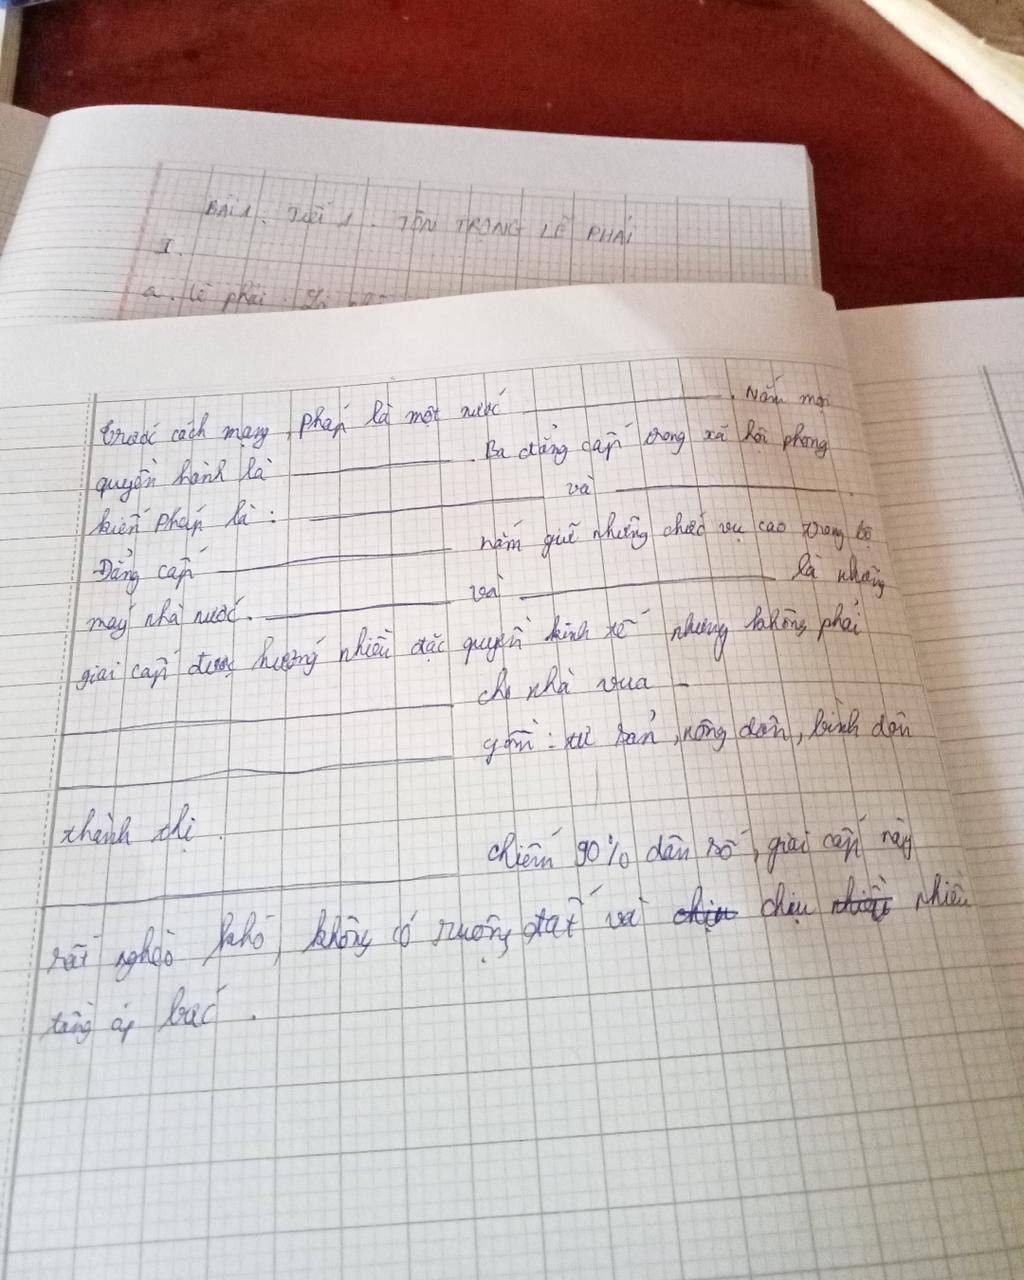 BÀI 1. TIẾT 1. TÔN TRỌNG LẼ PHẢI
I.
a. lẽ phải.
trước cách mạng, pháp là một nước ___________. Nắm mọi
quyền hành là ___________. Ba đẳng cấp trong xã hội phong
kiến pháp là: ___________ và ___________.
Đẳng cấp ___________ nắm giữ những chức vụ cao trong bộ
máy nhà nước. ___________ và ___________ là những
giai cấp được hưởng nhiều đặc quyền kinh tế nhưng không phải
___________ cho nhà vua.
___________ gồm: tư sản, nông dân, bình dân
thành thị.
___________ chiếm 90% dân số, giai cấp này
rất nghèo khổ, không có ruộng đất và chịu chịu nhiều nhiều
tầng áp bức.